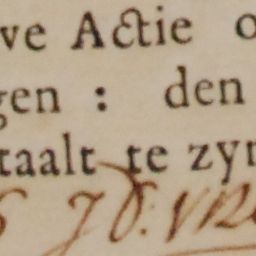 ve Actie o
gen : den
taalt te zyn
J D: Vr